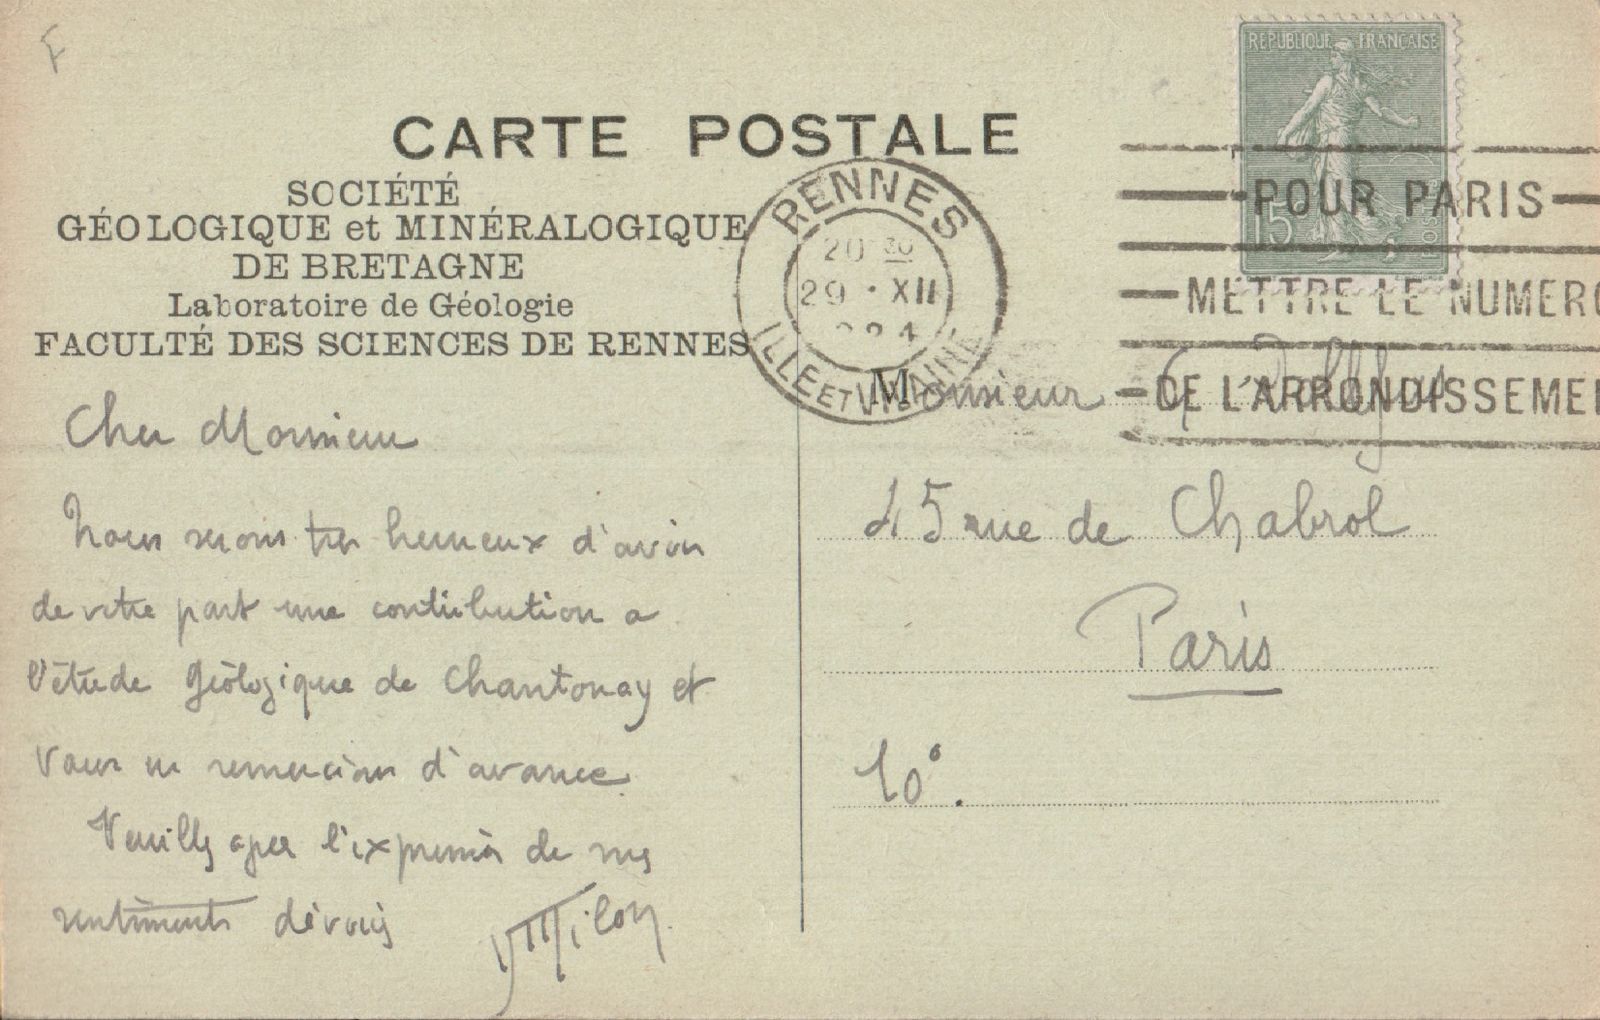 F
RÉPUBLIQUE FRANÇAISE
15
CARTE POSTALE
SOCIÉTÉ
GÉOLOGIQUE et MINÉRALOGIQUE
DE BRETAGNE
Laboratoire de Géologie
FACULTÉ DES SCIENCES DE RENNES
RENNES
20 30
29 · XII
ILLE ET VILAINE
POUR PARIS
METTRE LE NUMERO
DE L'ARRONDISSEMEN
Monsieur G Dollfus
45 rue de Chabrol
Paris
10°.
Cher Monsieur
Nous serions très heureux d'avoir
de votre part une contribution a
l'étude géologique de Chantonay et
Vous en remercions d'avance.
Veuillez agréer l'expression de mes
sentiments dévoués
YMilon